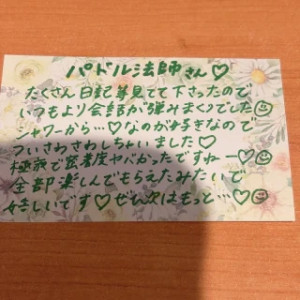 パドル法師さん♡
たくさん日記等見てて下さったので
いつもより会話が弾みまくりでした☺
シャワーから…♡なのが好きなので
ついさわさわしちゃいました♡
極狭で密着度ヤバかったですねー♡☺
全部楽しんでもらえたみたいで
嬉しいです♡ぜひ次はもっと…♡☺